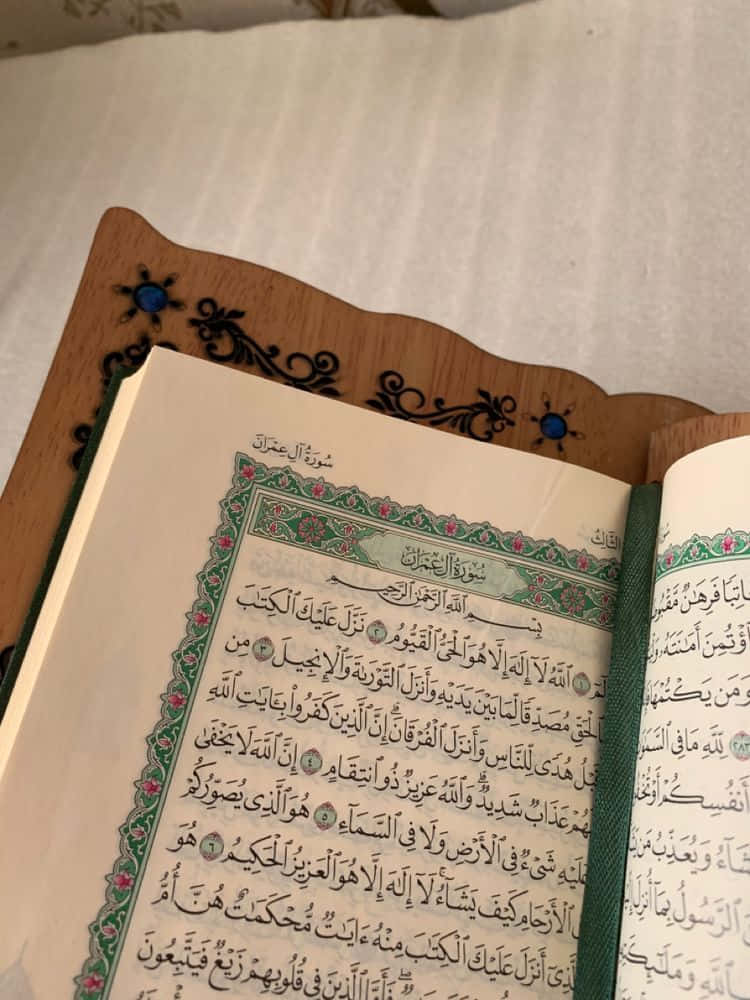 فَرِهَٰنٌ
ٱؤْتُمِنَ أَمَٰنَتَهُۥ
وَمَن يَكْتُمْهَا
٢٨٣ لِّلَّهِ مَا فِى
أَنفُسِكُمْ أَوْ
وَيُعَذِّبُ مَن
ٱلرَّسُولُ بِمَآ أُنزِلَ
سُورَةُ آلِ عِمْرَانَ
الثَّالِثُ
سُورَةُ آلِ عِمْرَانَ
بِسْمِ ٱللَّهِ ٱلرَّحْمَٰنِ ٱلرَّحِيمِ
١ ٱللَّهُ لَآ إِلَٰهَ إِلَّا هُوَ ٱلْحَىُّ ٱلْقَيُّومُ ٢ نَزَّلَ عَلَيْكَ ٱلْكِتَٰبَ
بِٱلْحَقِّ مُصَدِّقًا لِّمَا بَيْنَ يَدَيْهِ وَأَنزَلَ ٱلتَّوْرَىٰةَ وَٱلْإِنجِيلَ ٣ مِن
قَبْلُ هُدًى لِّلنَّاسِ وَأَنزَلَ ٱلْفُرْقَانَ ۗ إِنَّ ٱلَّذِينَ كَفَرُوا۟ بِـَٔايَٰتِ ٱللَّهِ
لَهُمْ عَذَابٌ شَدِيدٌ ۗ وَٱللَّهُ عَزِيزٌ ذُو ٱنتِقَامٍ ٤ إِنَّ ٱللَّهَ لَا يَخْفَىٰ
عَلَيْهِ شَىْءٌ فِى ٱلْأَرْضِ وَلَا فِى ٱلسَّمَآءِ ٥ هُوَ ٱلَّذِى يُصَوِّرُكُمْ
فِى ٱلْأَرْحَامِ كَيْفَ يَشَآءُ ۚ لَآ إِلَٰهَ إِلَّا هُوَ ٱلْعَزِيزُ ٱلْحَكِيمُ ٦ هُوَ
ٱلَّذِىٓ أَنزَلَ عَلَيْكَ ٱلْكِتَٰبَ مِنْهُ ءَايَٰتٌ مُّحْكَمَٰتٌ هُنَّ أُمُّ
فَأَمَّا ٱلَّذِينَ فِى قُلُوبِهِمْ زَيْغٌ فَيَتَّبِعُونَ